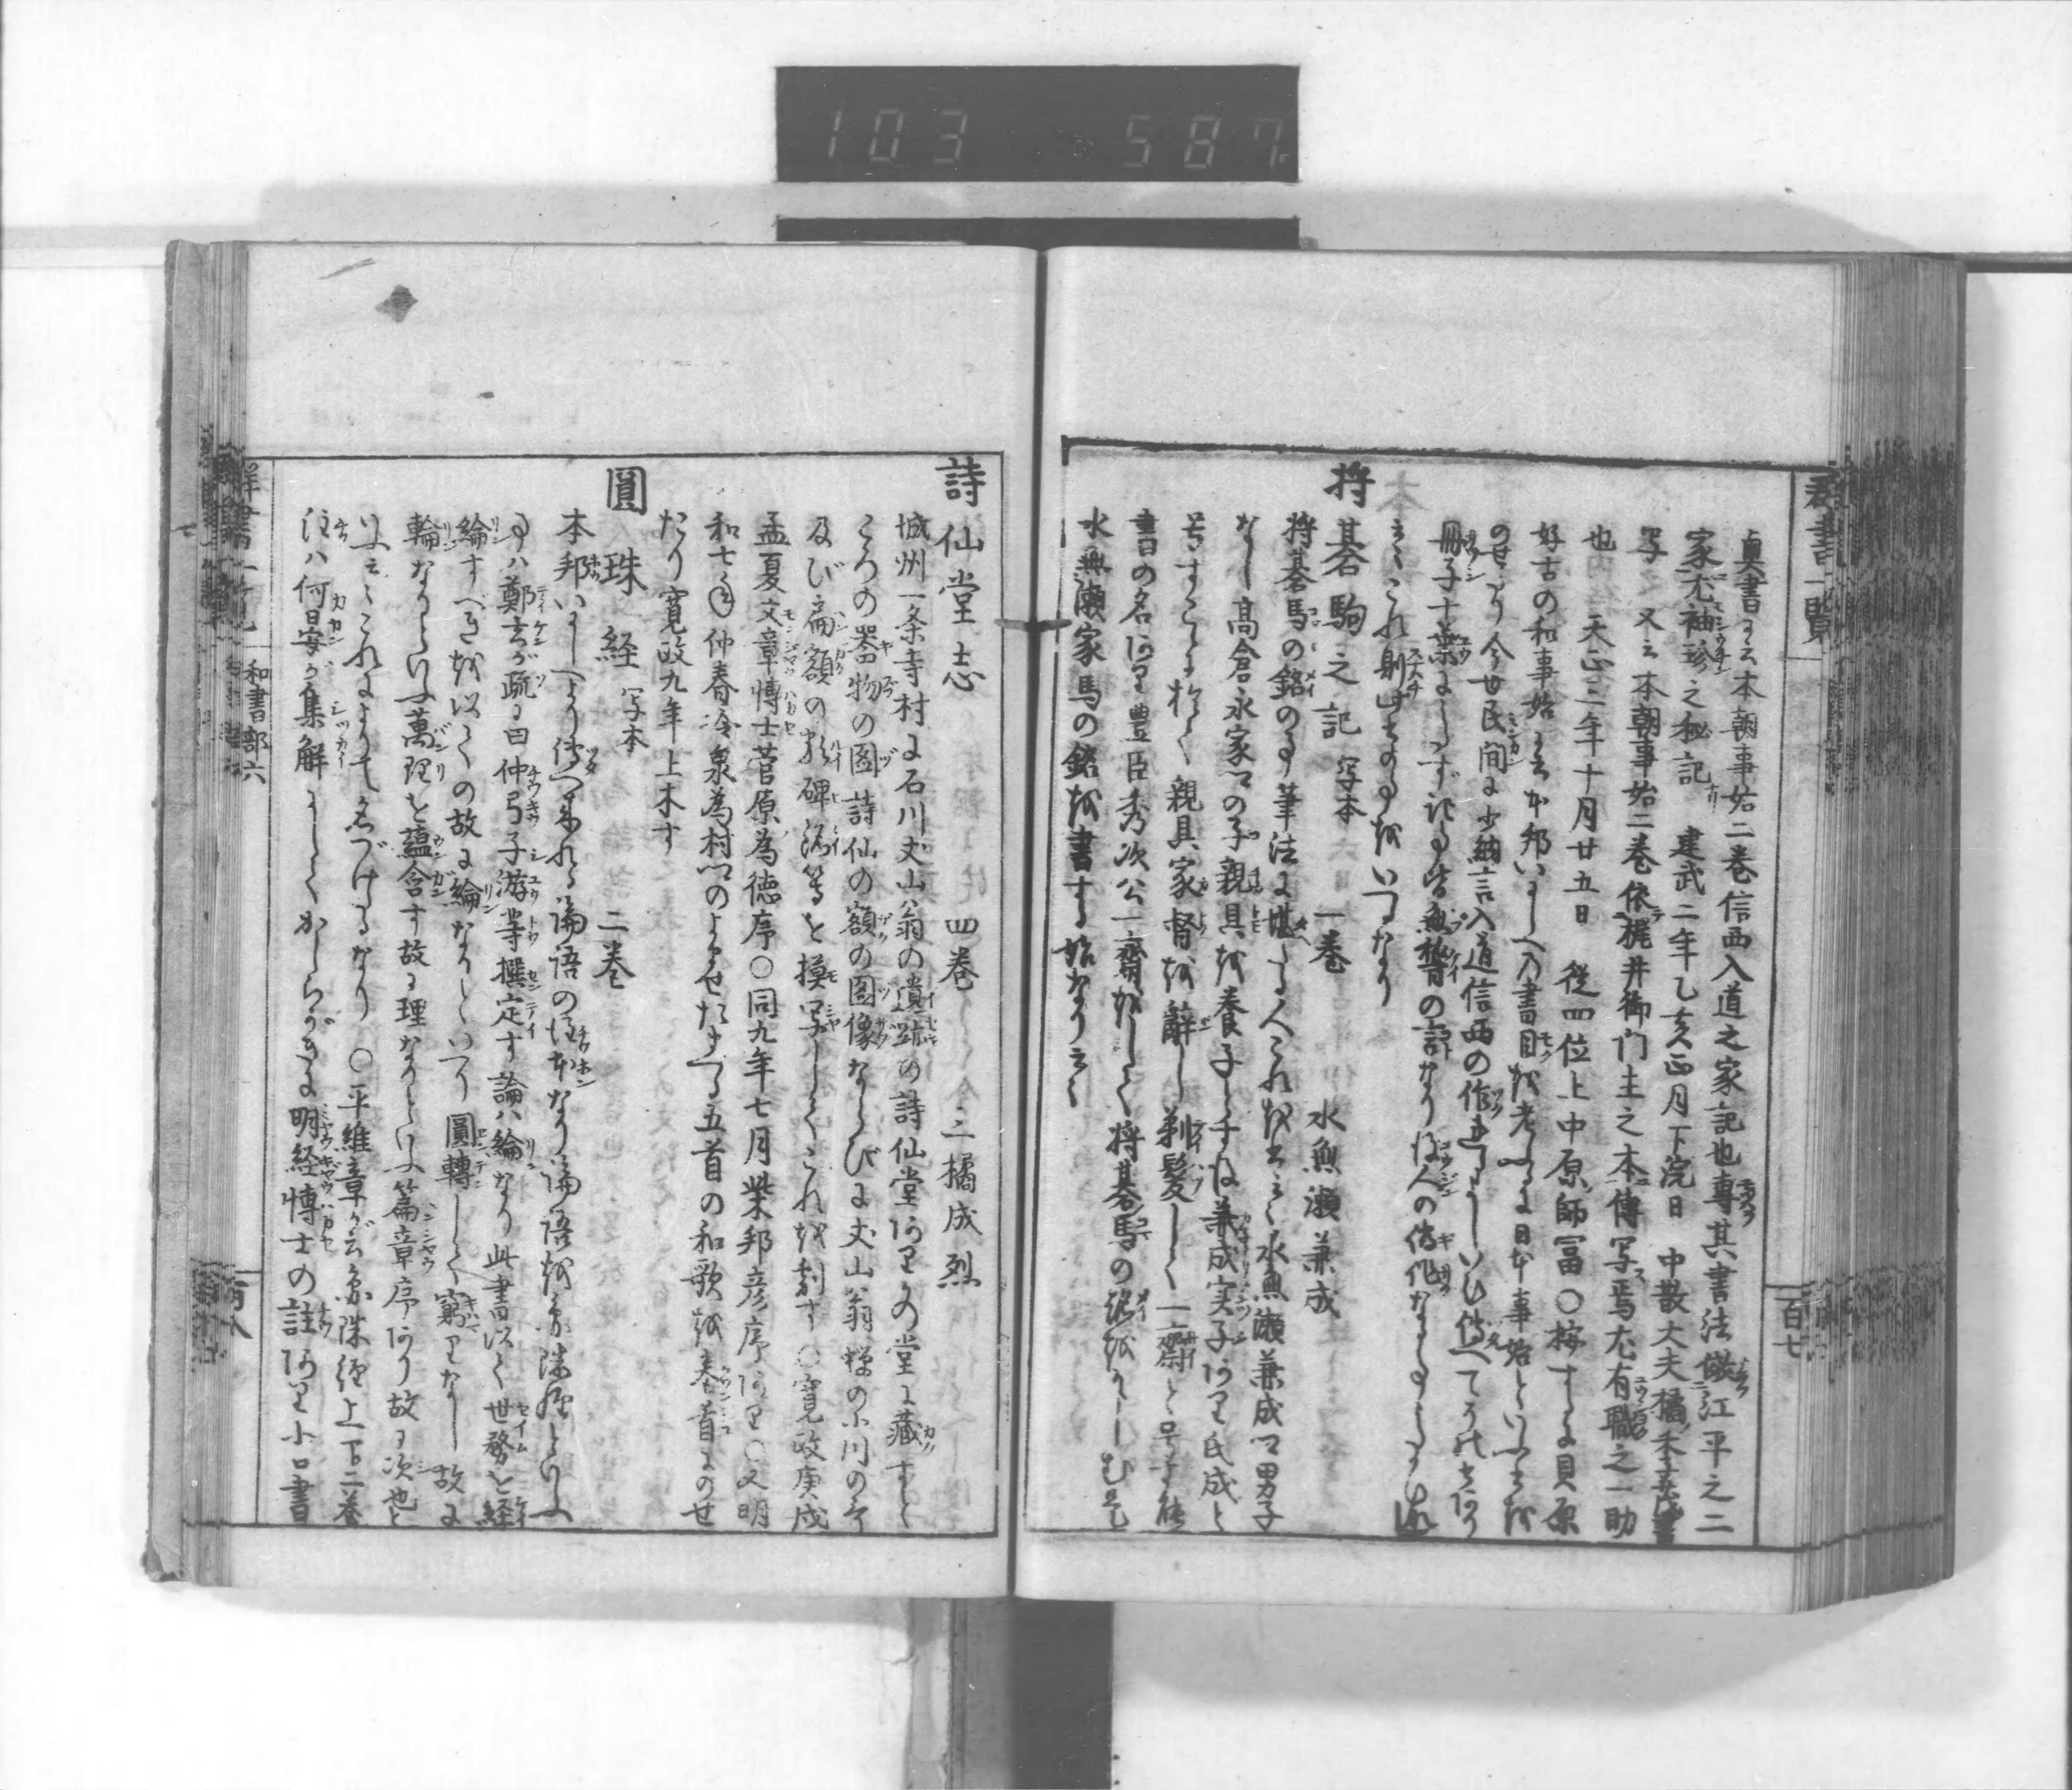 103 587
群書一覧
百七
奥書云本朝事始二巻信西入道之家記也専其書法倣江平之二
家尤袖珍之秘記 建武二年乙亥正月下浣日 中散大夫橘
写之 又云本朝事始二巻依梶井御门主之本傳写焉尤有職之一助
也 天正三年十月廿五日 従四位上中原師冨〇按するに貝原
好古の和事始に云本邦いにしへの書目を考ふるに日本事始といふ書を
のせたり今世民間に少納言入道信西の作也といひ傳へてその書あり
冊子十葉にみたず記する皆無稽の言なり後人の偽作なる
云々これ則此書の事をいへるなり
将棊駒之記 写本 一巻 水無瀬兼成
将棊馬の銘の事筆法に堪たる人これを書云々水無瀬兼成卿男子
なし高倉永家卿の子親具を養子とす後兼成実子あり氏成と
号すこゝに於て親具家督を辭し剃髪して一齋と号す能
書の名あり豊臣秀次公一齋をして将棊馬の銘を
水無瀬家馬の銘を書する始なり云々
詩仙堂志 四巻 三橘成烈
城州一条寺村に石川丈山翁の遺跡の詩仙堂ありその堂に藏する
ころの器物の圖詩仙の額の圖像ならびに丈山翁
及び扁額の類碑銘等を摸写してこれを刻す〇寛政庚戌
孟夏文章博士菅原為徳序〇同九年七月柴邦彦序あり〇又明
和七年仲春冷泉為村卿のよませたまへる五首の和歌を巻首にのせ
たり寛政九年上木す
圓珠経 写本 二巻
本邦いにしへより傳へ来れる論語の注本なり論語を圓珠経といふ
事ハ鄭玄が疏に曰仲弓子游等撰定す論ハ綸なり此書以て世務を経
綸すべきを以ての故に綸なりといへり圓轉して窮りなし故に
輪なりといふ萬理を蘊含す故に理なりといふ篇章序あり故に次也と
いふ云々これによりて名づけるなり〇平維章が云圓珠経上下二巻
注ハ何晏が集解にして かしらがきに明経博士の註あり小口書
群書一覧 和書部六
百八